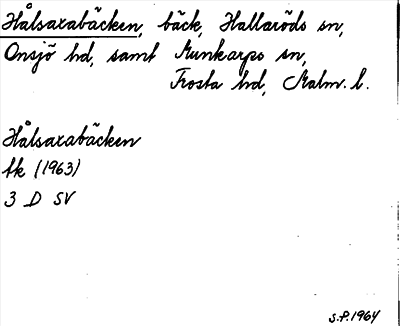 Hålsaxabäcken, bäck, Hallaröds sn,
Onsjö hd, samt Munkarps sn,
Frosta hd, Malm. l.
Hålsaxabäcken
tk (1963)
3 D SV
S.P. 1964